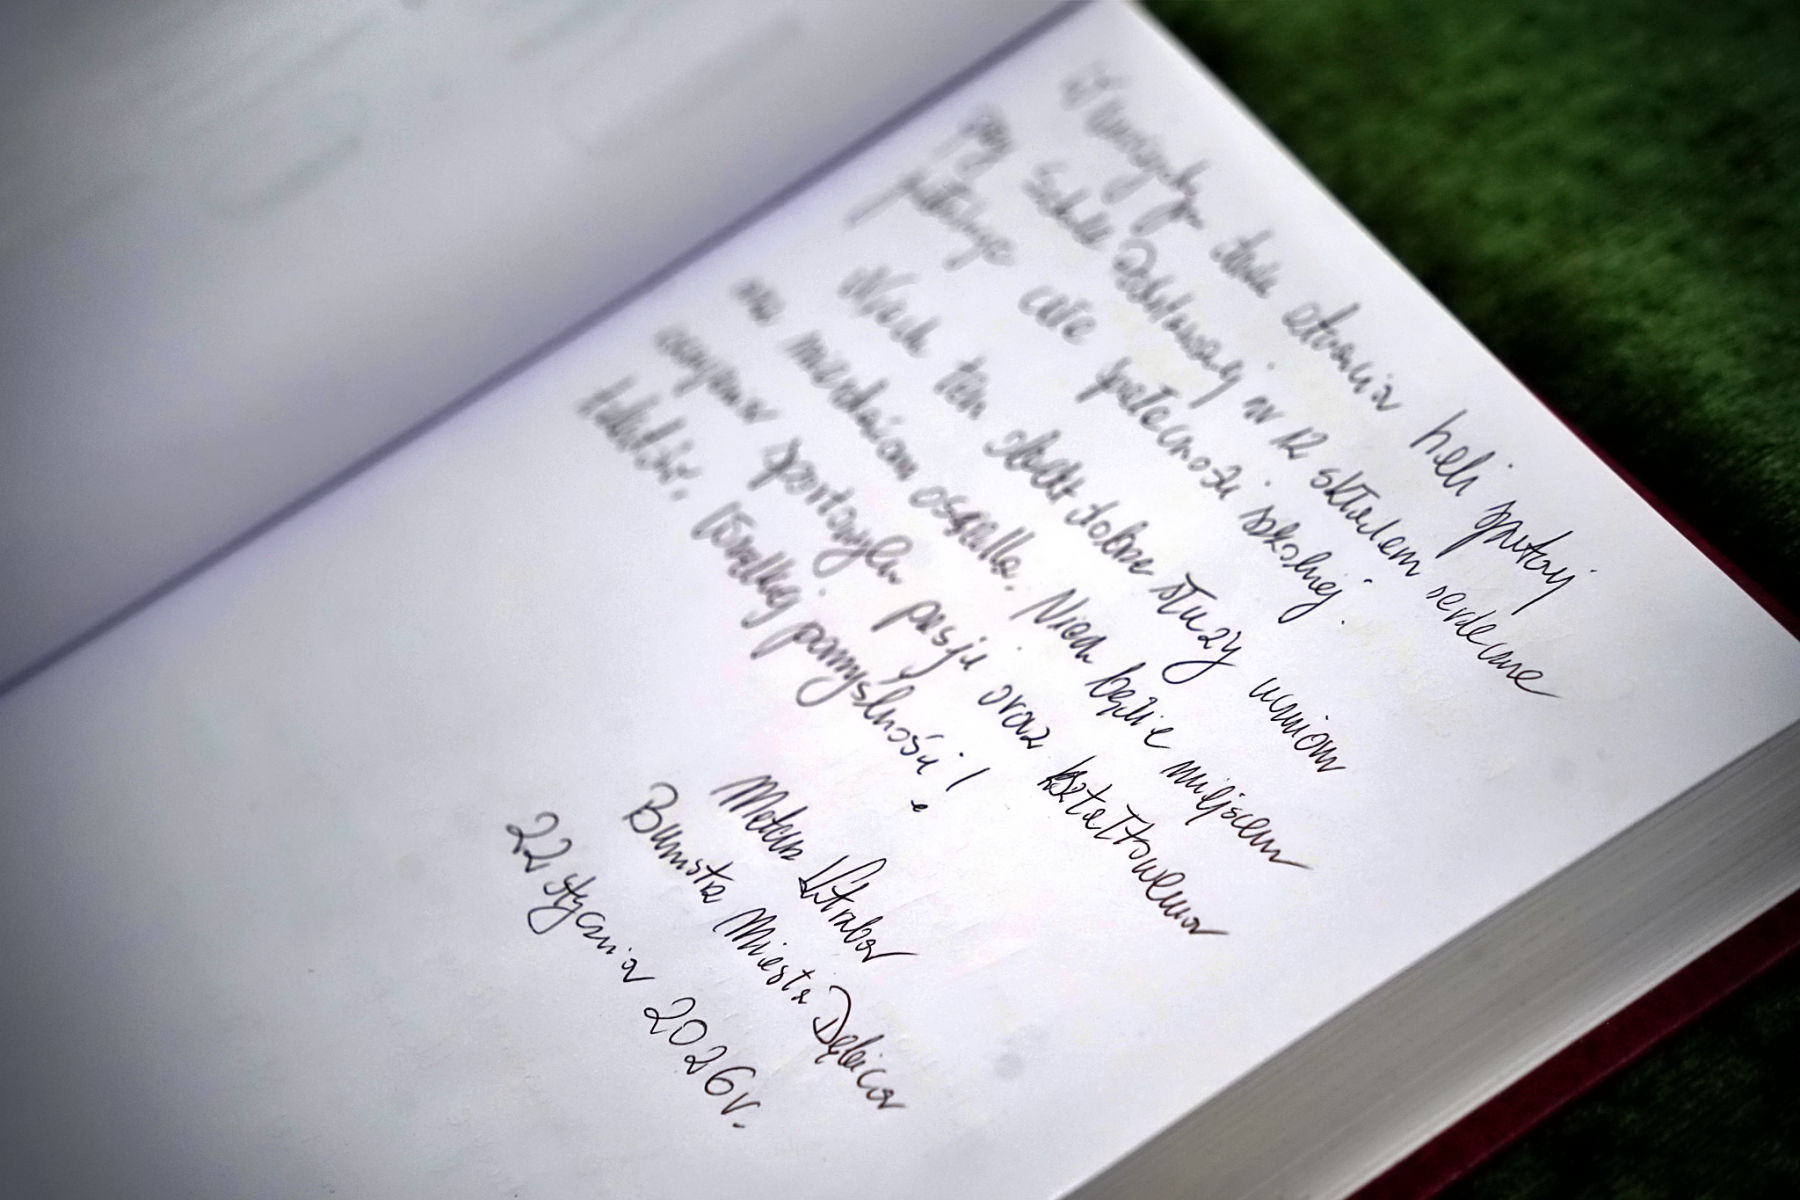 W związku dniem otwarcia hali sportowej
przy Szkole Podstawowej nr 12 składam serdeczne
gratulacje całej społeczności szkolnej.
Niech ten obiekt dobrze służy uczniom
oraz mieszkańcom osiedla. Niech będzie miejscem
sportowych pasji oraz kształtowania
talentów. Wszelkiej pomyślności!
Mateusz
Burmistrz Miasta Dębica
22 stycznia 2026 r.